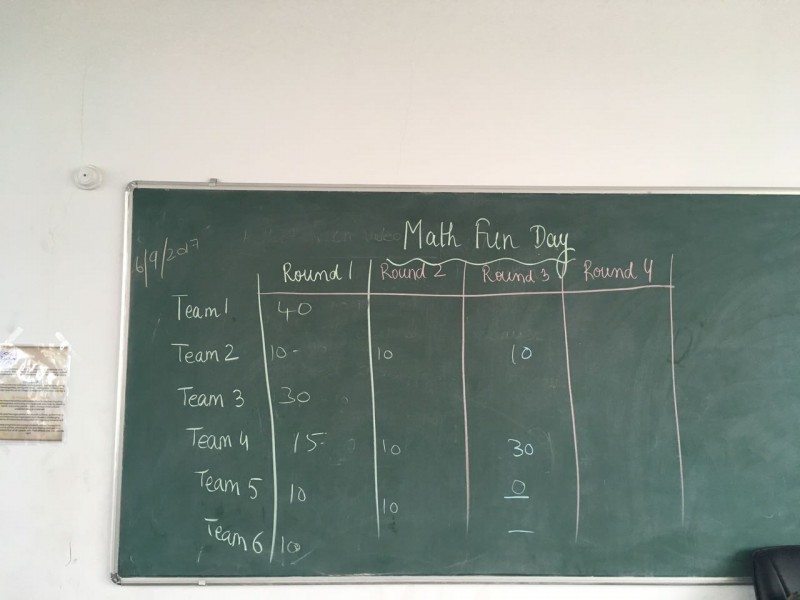 Math Fun Day
6/9/2017
Round 1 Round 2 Round 3 Round 4
Team 1 40
Team 2 10 - 10 10
Team 3 30
Team 4 15 10 30
Team 5 10 10 0
Team 6 10 —